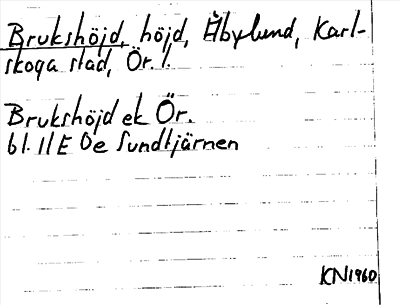 Brukshöjd, höjd, Åbylund, Karl-
skoga stad, Ör. l.
Brukshöjd ek Ör.
bl. 11E 0e Sundtjärnen
KN1960